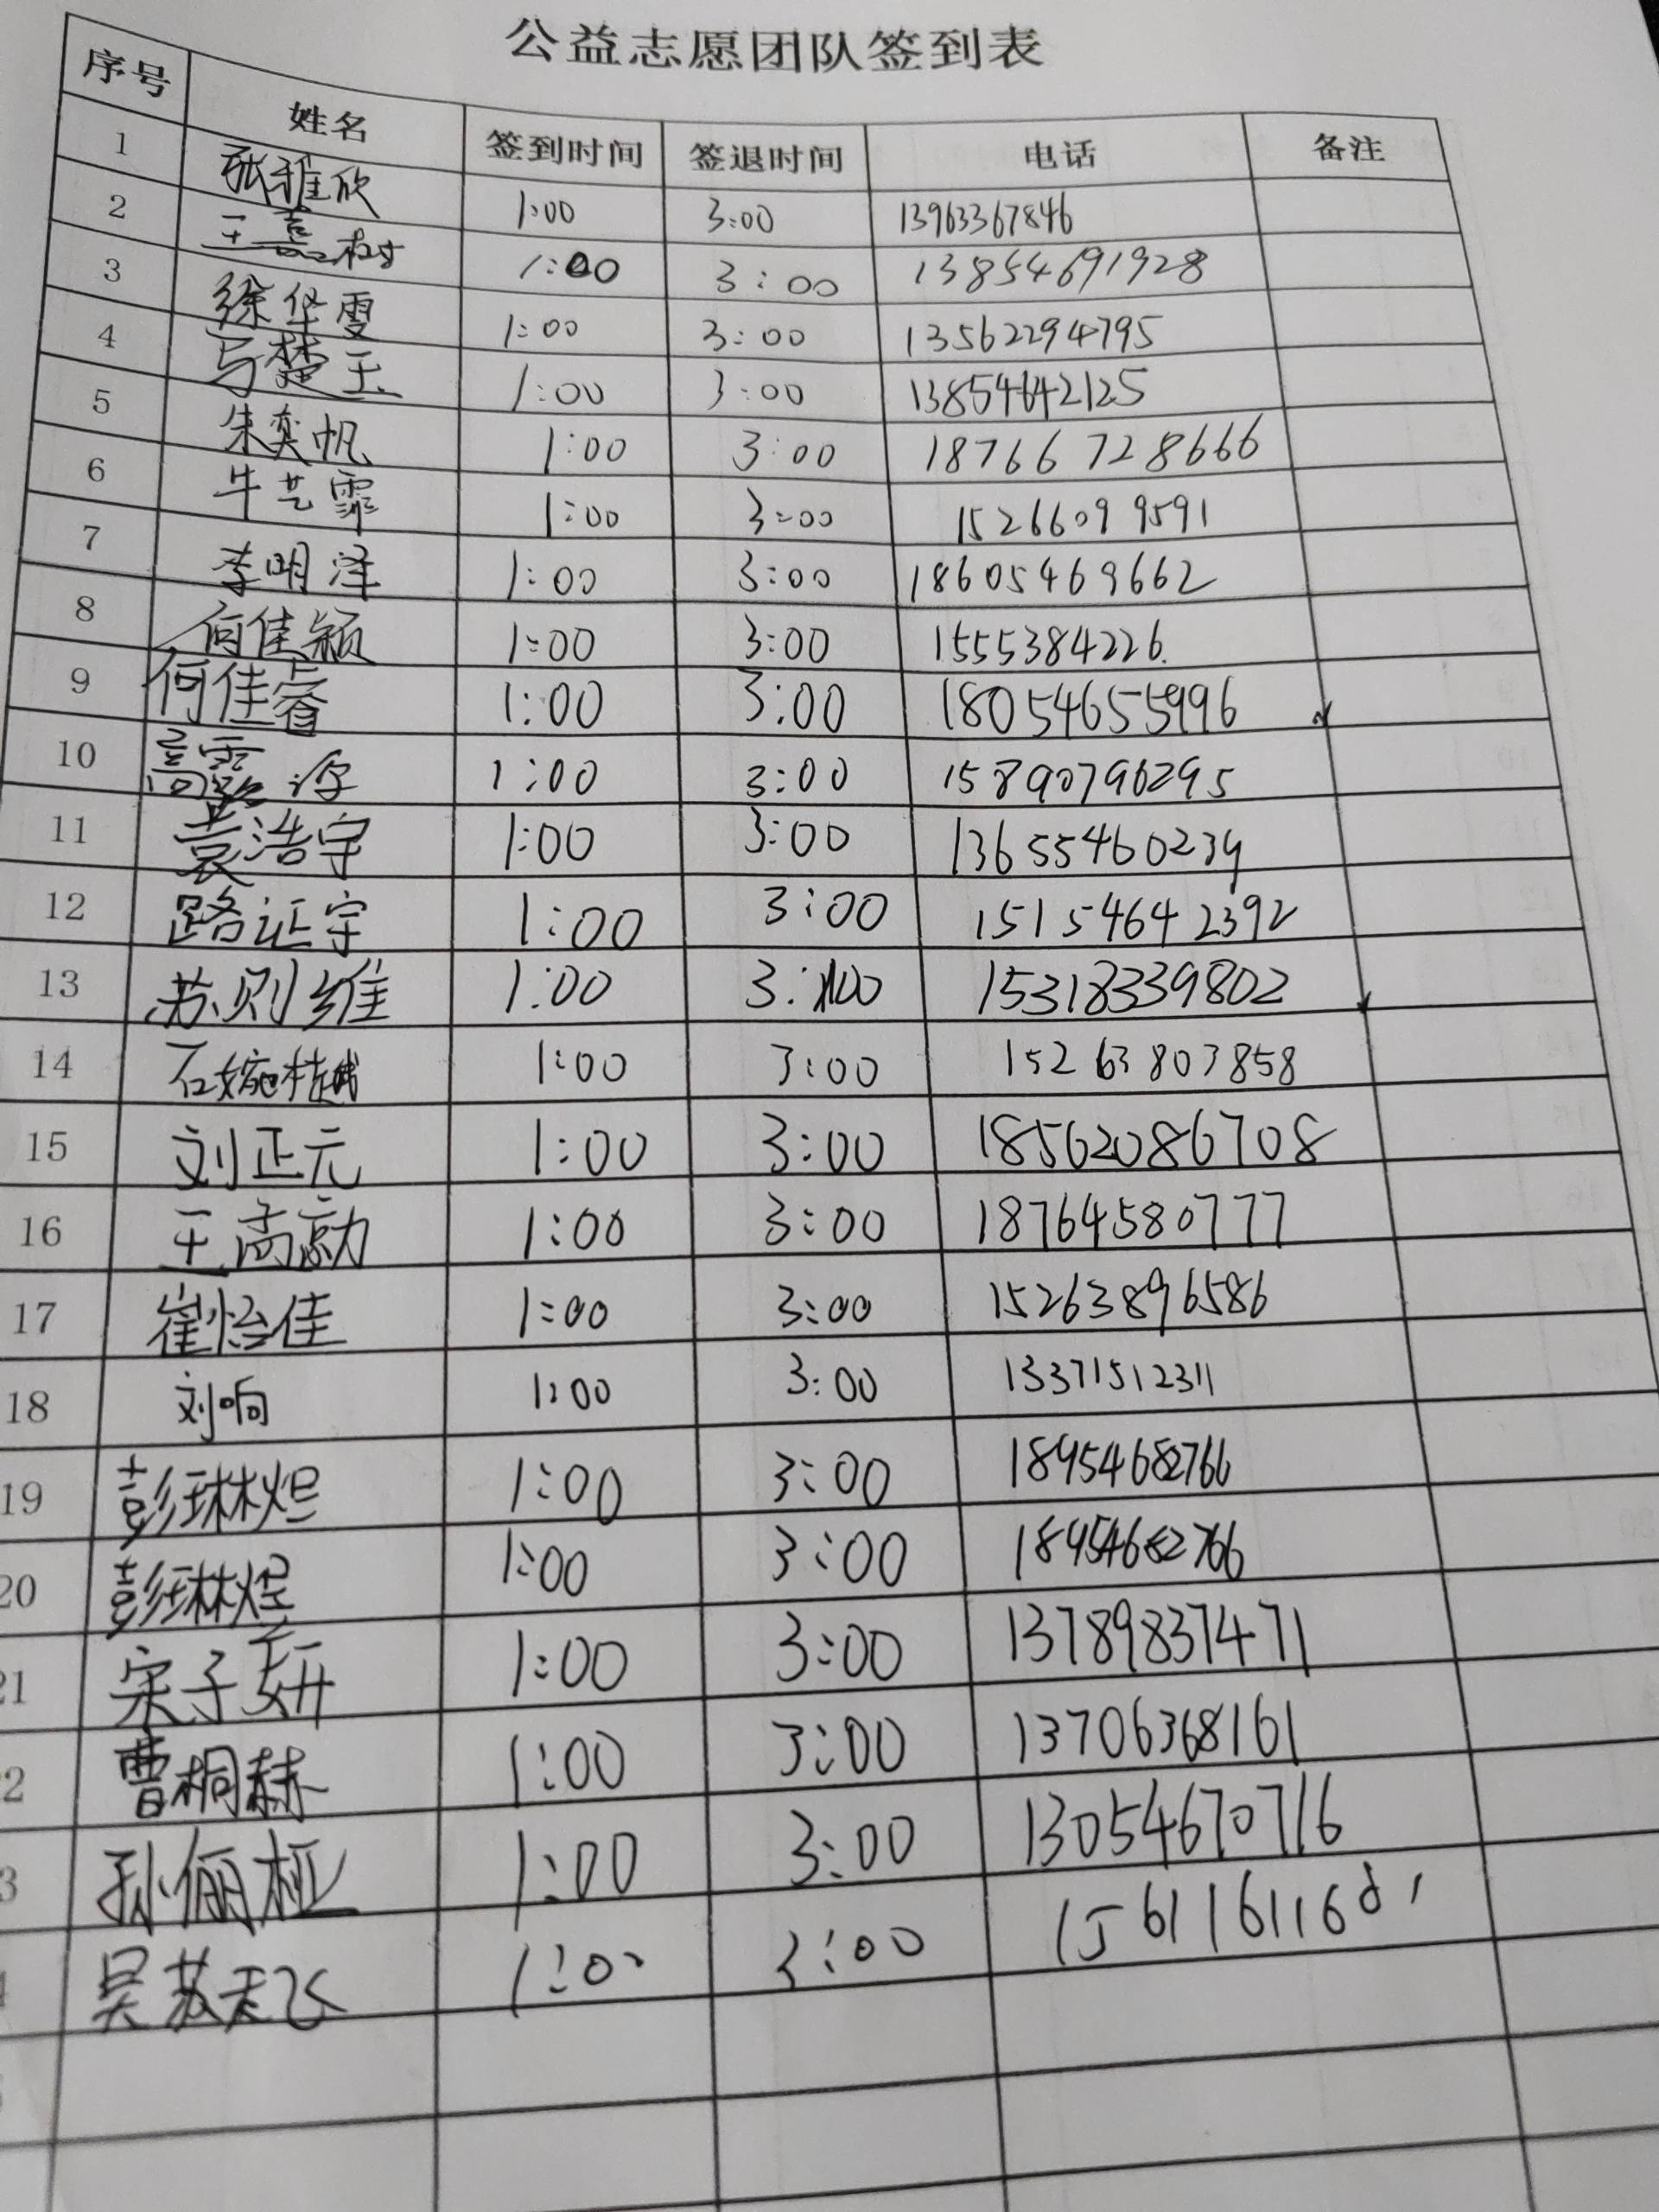 公益志愿团队签到表
序号 姓名 签到时间 签退时间 电话 备注
1 张雅欣 1:00 3:00 13963367846
2 王嘉树 1:00 3:00 13854691928
3 徐华雯 1:00 3:00 13562294795
4 马楚玉 1:00 3:00 13854642125
5 朱奕帆 1:00 3:00 18766728666
6 牛艺霏 1:00 3:00 15266099591
7 李明泽 1:00 3:00 18605469662
8 何佳颖 1:00 3:00 1555384226.
9 何佳睿 1:00 3:00 18054655996
10 高露淳 1:00 3:00 15890796295
11 袁浩宇 1:00 3:00 13655460239
12 路证宇 1:00 3:00 15154642392
13 苏则维 1:00 3:00 15318339802
14 石婉桂 1:00 3:00 15263803858
15 刘正元 1:00 3:00 18562086708
16 王高勍 1:00 3:00 18764580777
17 崔怡佳 1:00 3:00 15263896586
18 刘响 1:00 3:00 13371512311
19 彭琳炟 1:00 3:00 18954682766
20 彭琳煜 1:00 3:00 18954682766
21 宋子妍 1:00 3:00 13789837471
2 曹桐赫 1:00 3:00 13706368161
3 孙俪桠 1:00 3:00 13054670716
吴苏飞 1:00 3:00 15611611681